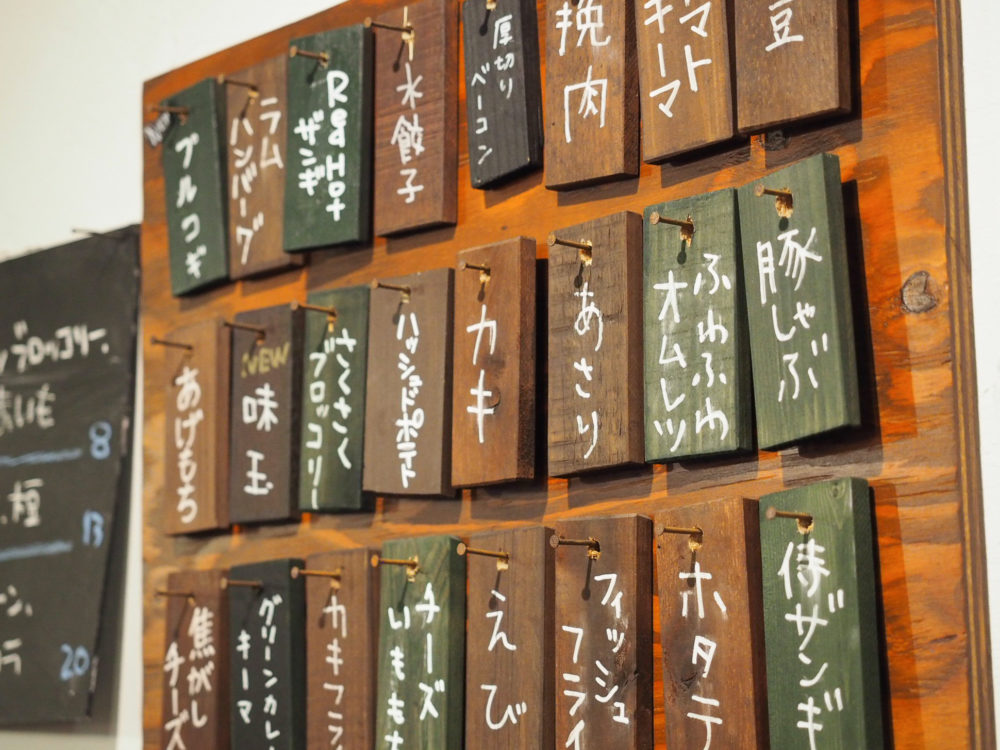 NEW
プルコギ
ラム
ハンバーグ
Red Hot
ザンギ
水餃子
厚切り
ベーコン
挽肉
トマト
キーマ
豆
あげもち
NEW
味玉
さくさく
ブロッコリー
カキ
あさり
ふわふわ
オムレツ
豚しゃぶ
焦がし
チーズ
グリーンカレー
キーマ
カキフライ
チーズ
いももち
えび
フィッシュ
フライ
ホタテ
侍ザンギ
ブロッコリー、
8
13
20